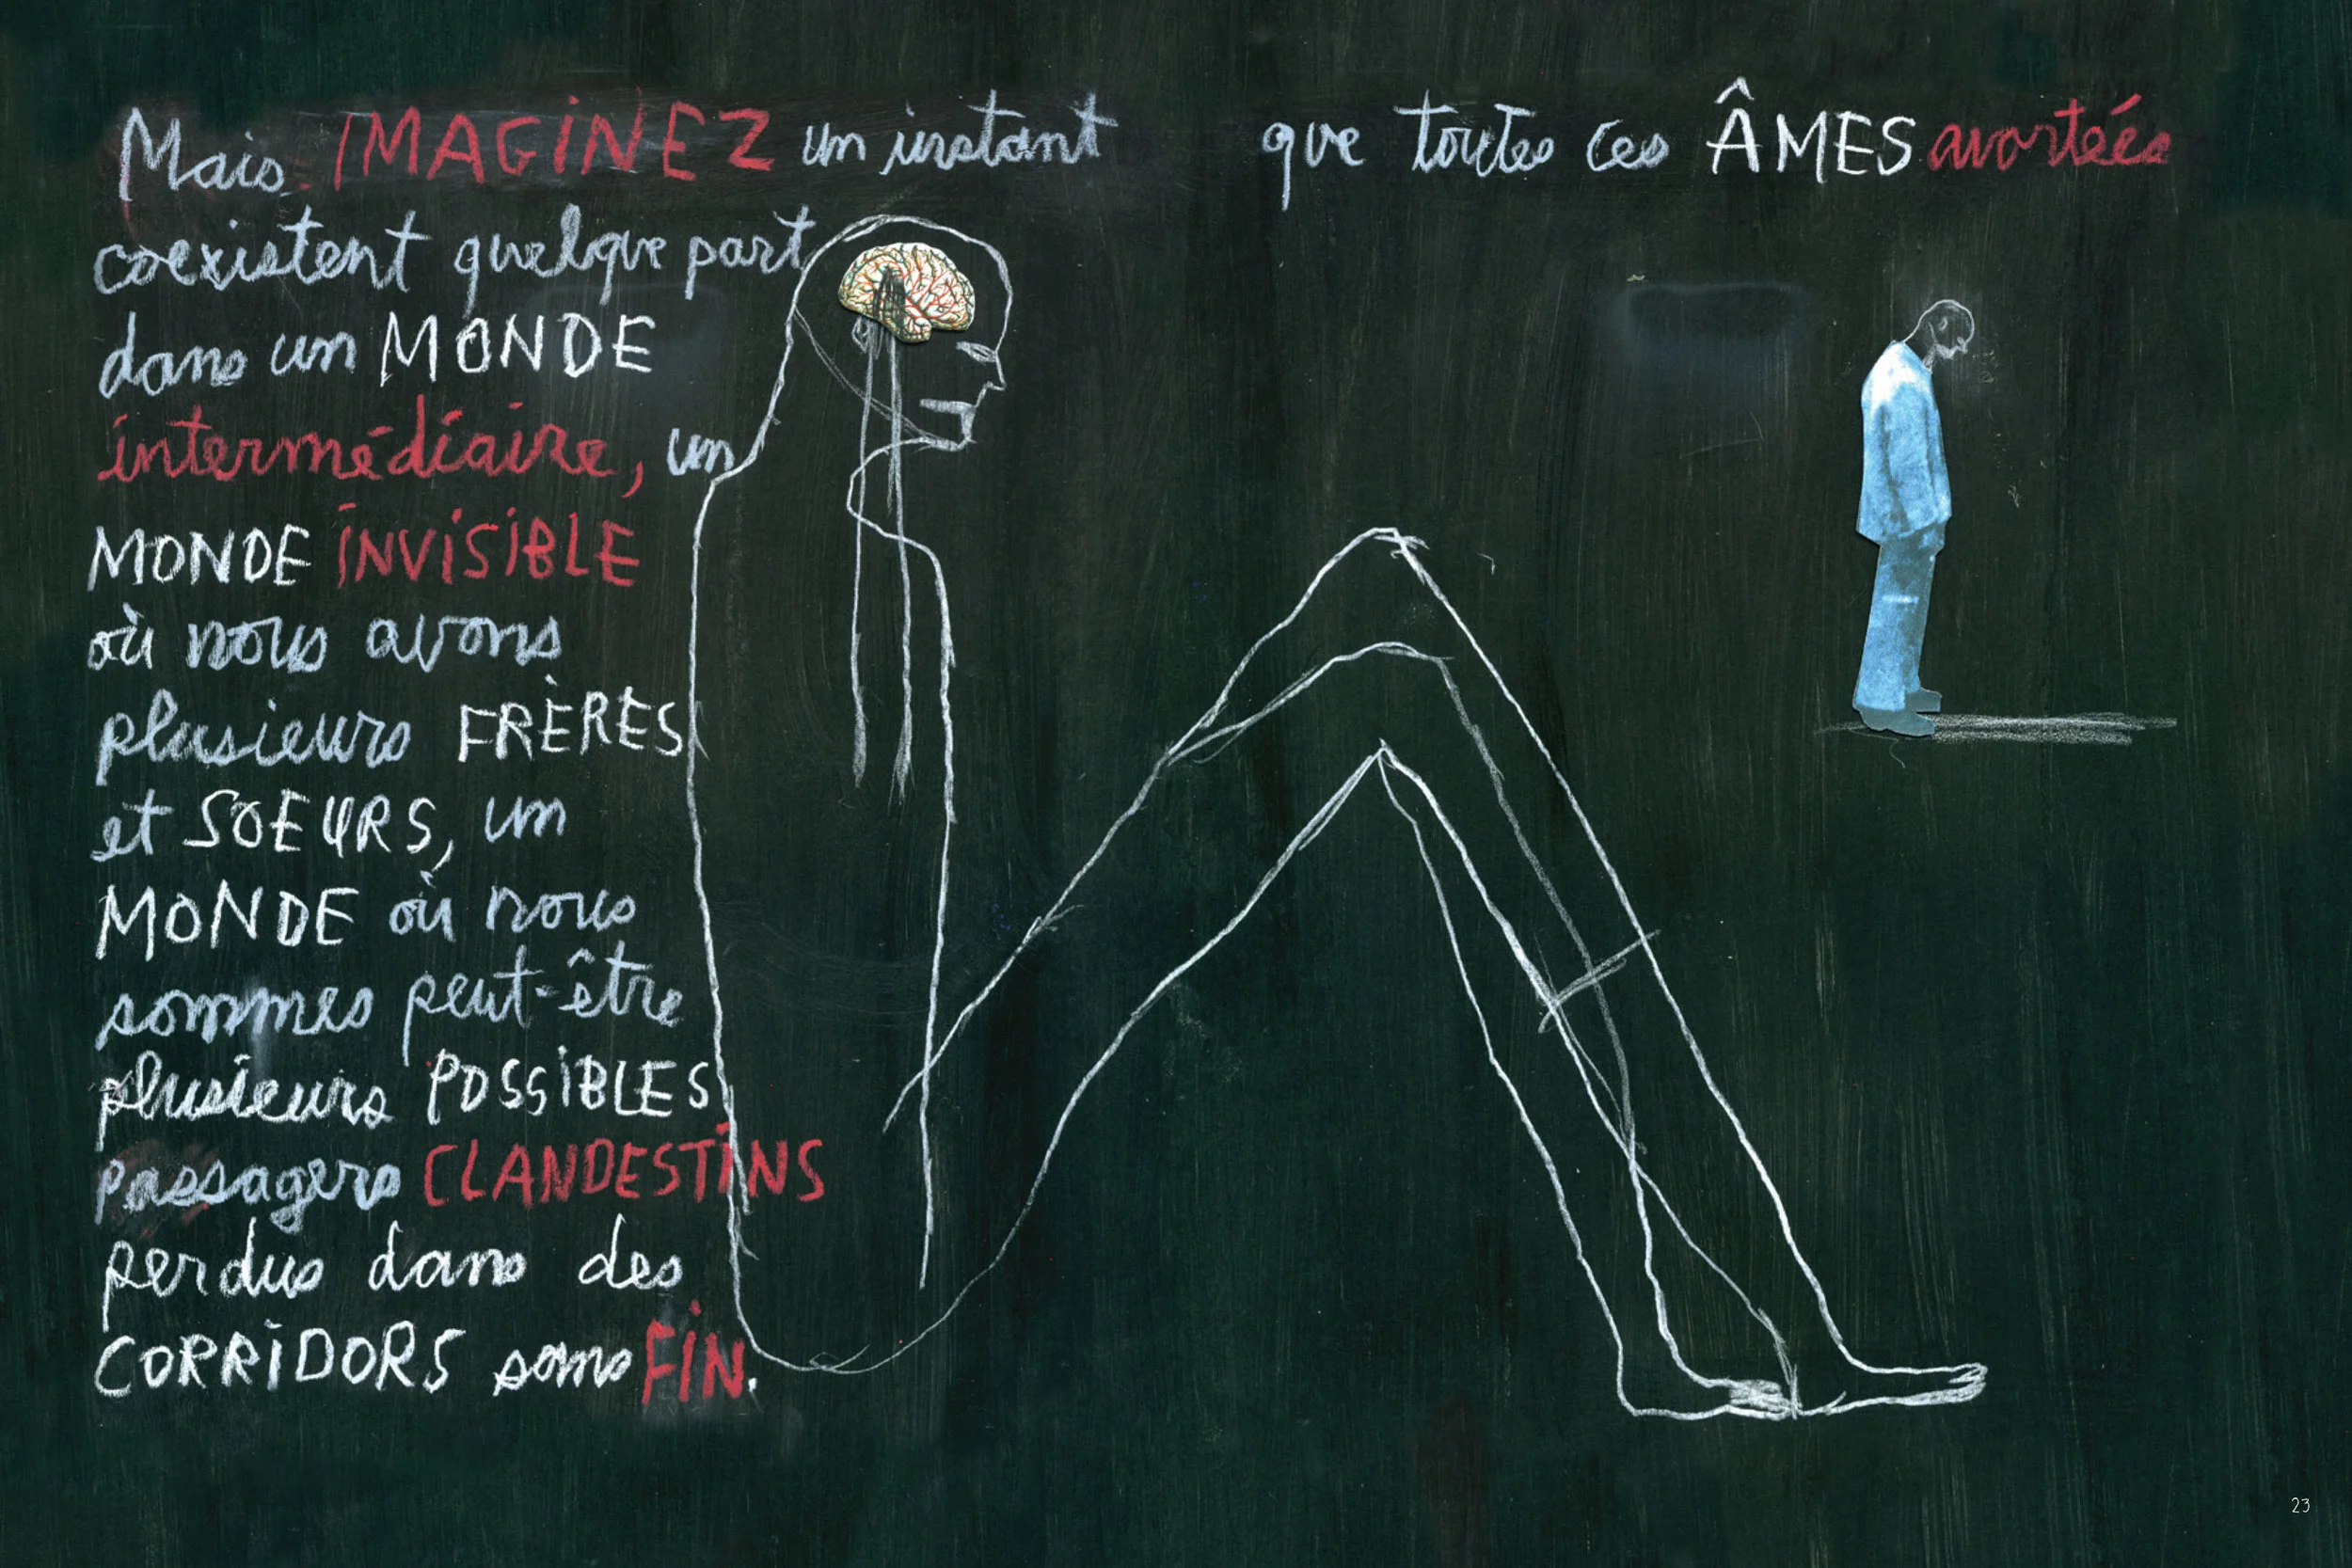 Mais IMAGINEZ un instant que toutes ces ÂMES avortées
coexistent quelque part
dans un MONDE
intermédiaire, un
MONDE INVISIBLE
où nous avons
plusieurs FRÈRES
et SOEURS, un
MONDE où nous
sommes peut-être
plusieurs POSSIBLES
passagers CLANDESTINS
perdus dans des
CORRIDORS sans FIN.
23